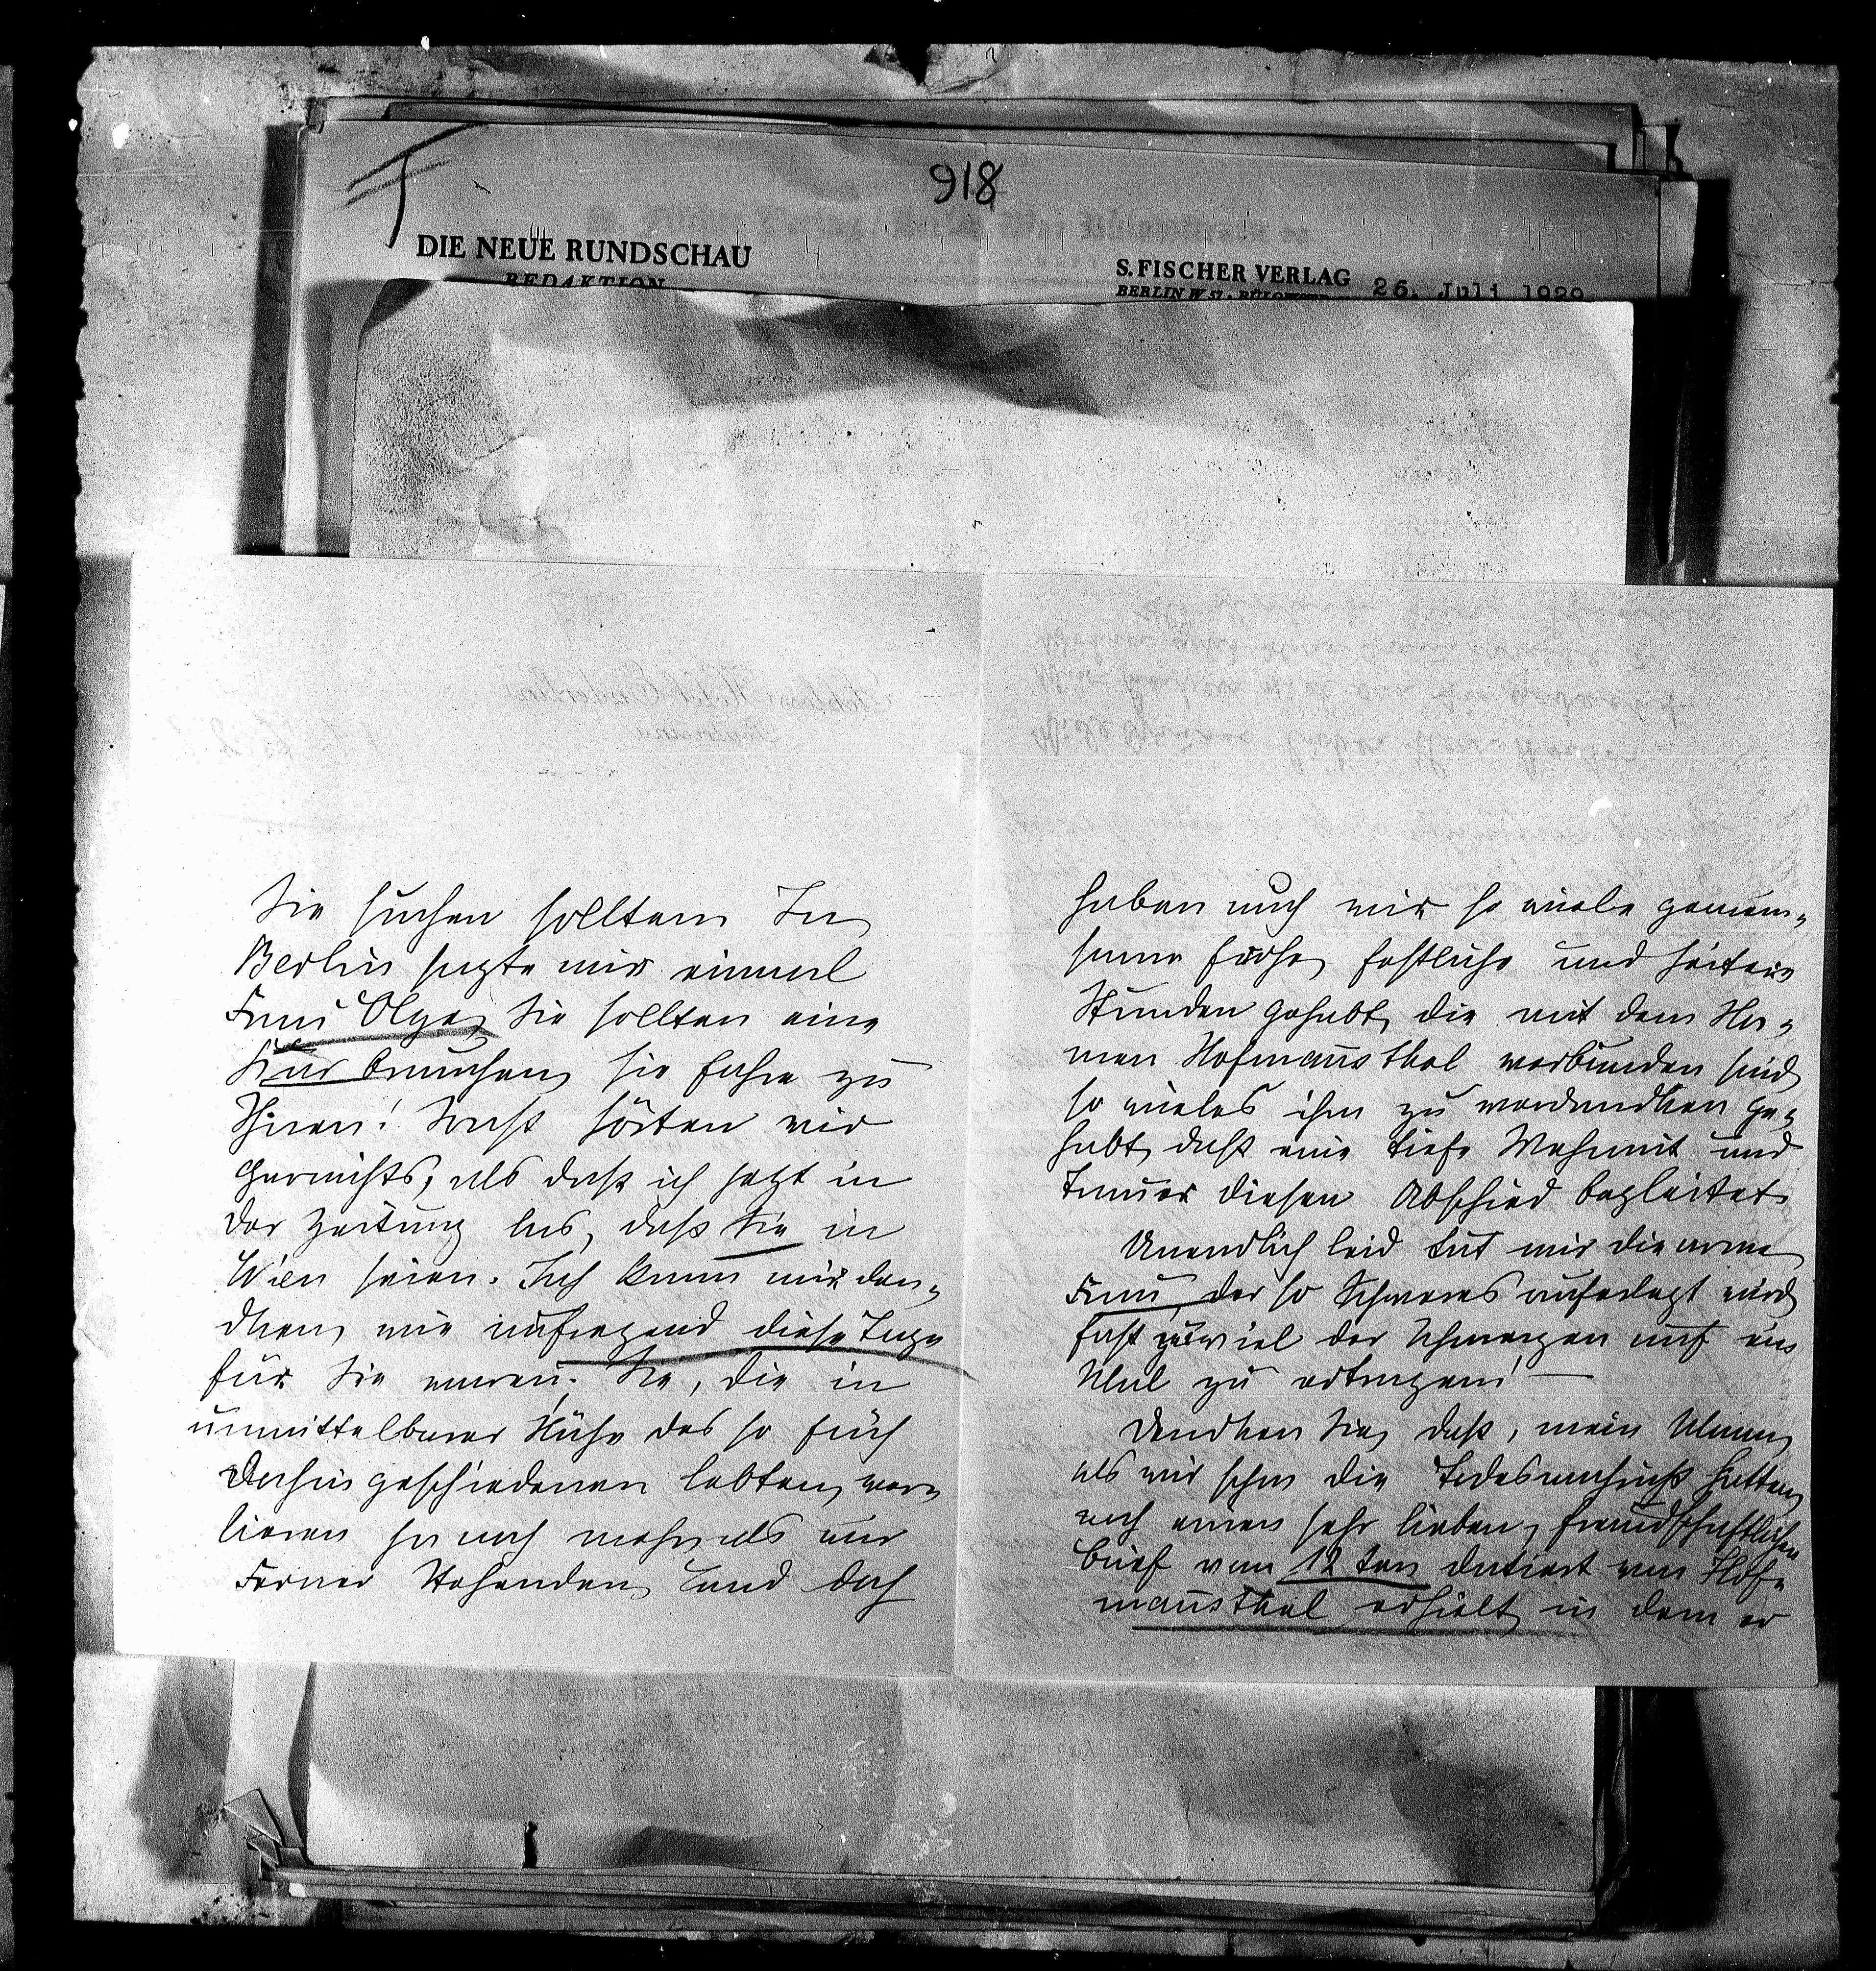 918
DIE NEUE RUNDSCHAU
REDAKTION
S. FISCHER VERLAG
BERLIN W 57 · BÜLOWSTR
26. Juli 1929
Sie suchen sollten. In
Berlin sagte mir einmal
Frau Olga, Sie sollten eine
Kur brauchen, sie fahre zu
Ihnen! Sonst hörten wir
garnichts, als daß ich jetzt in
der Zeitung las, daß Sie in
Wien seien. Ich kann mir den-
cken, wie aufregend diese Tage
für Sie waren. Sie, die in
unmittelbarer Nähe des so früh
Dahingeschiedenen lebten, ver-
lieren ja noch mehr, als wir
Ferner Stehenden, und doch
haben auch wir so viele gemein-
same frohe, festliche und heitere
Stunden gehabt, die mit dem Na-
men Hofmannsthal verbunden sind,
so vieles ihm zu verdancken ge-
habt, daß eine tiefe Wehmut und
Trauer diesen Abschied begleitet.
Unendlich leid tut mir die arme
Frau, der so Schweres auferlegt wird,
fast zuviel der Schmerzen auf ein
Mal zu ertragen! —
Dencken Sie, daß, mein Mann,
als wir schon die Todesnachricht hatten,
noch einen sehr lieben, freundschaftlichen
Brief vom 12 ten datiert von Hof-
mannsthal erhielt, in dem er